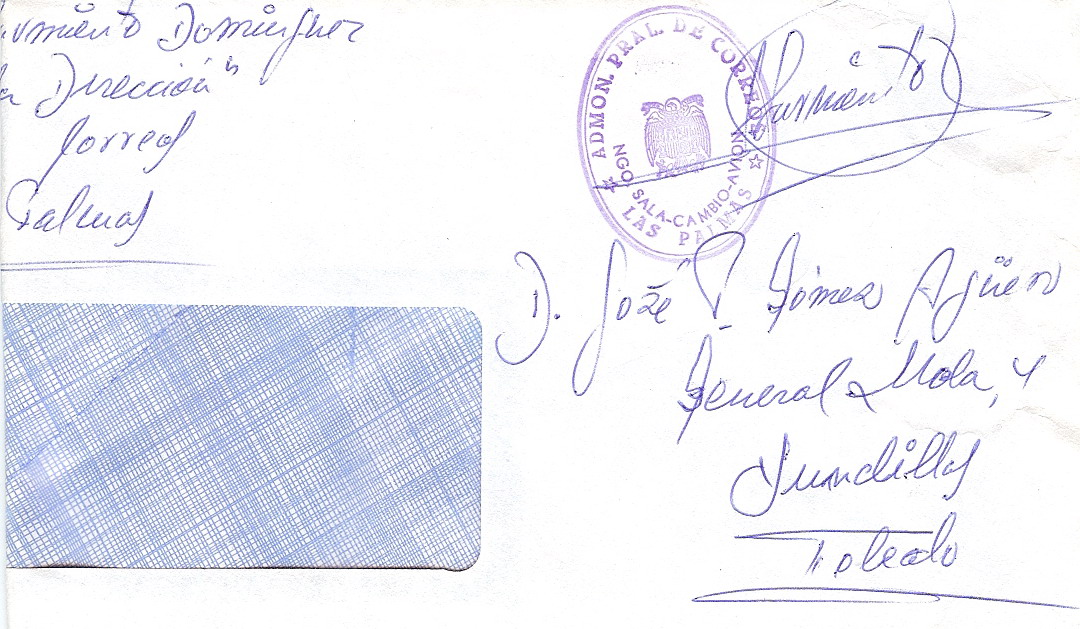 Domínguez
Dirección"
Correos
Palmas
ADMON. PRAL. DE CORREOS
NGO. SALA-CAMBIO-AVION
LAS PALMAS
D. José Gómez Agüero
General Mola, 4
Yuncillos
Toledo